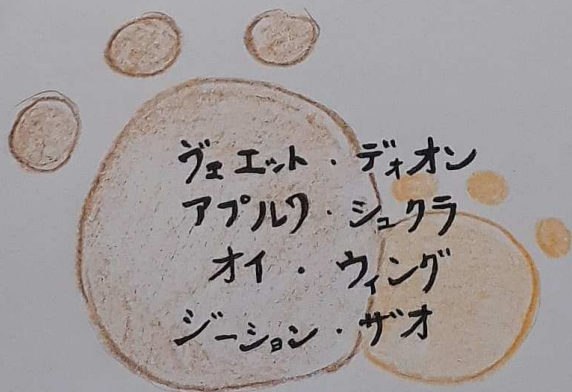 ヴェエット・ディオン
アプルワ・シュクラ
オイ・ウィング
ジーション・ザオ